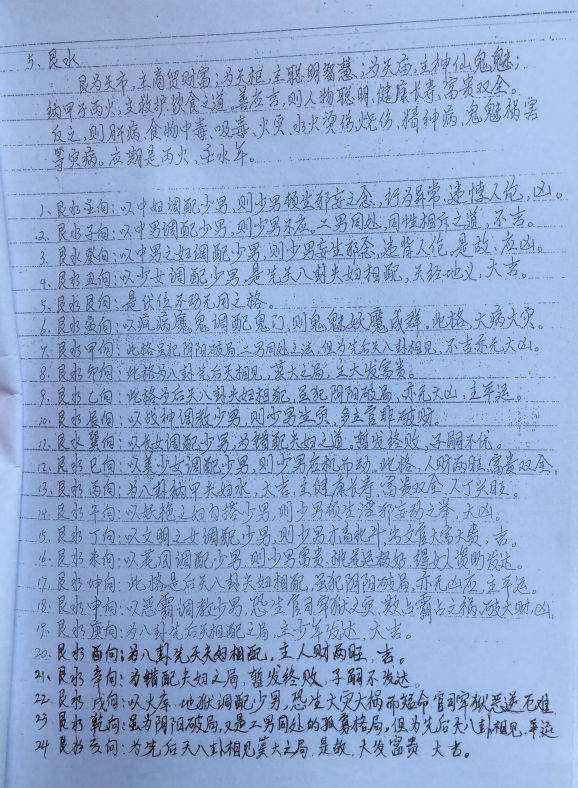 5、艮水
艮为天市，主商贸财富；为天枢，主聪明智慧；为天庙，主神仙鬼魅；
纳甲于丙火，主救护饮食之道。善应吉，则人物聪明、健康长寿、富贵双全。
反之，则肝病、食物中毒、吸毒、火灾、水火烫伤、烧伤、精神病、鬼魅祸害
等灾病。应期是丙火、壬水年。
1、艮水壬向：以中妇调配少男，则少男顿生邪妄之念，行为异常，违悖人伦，凶。
2、艮水子向：以中男调配少男，则少男不应。二男同处，同性相斥之道，不吉。
3、艮水癸向：以中男之妇调配少男，则少男妄生邪念，违背人伦，是故，应凶。
4、艮水丑向：以少女调配少男，是先天八卦夫妇相配，天经地义，大吉。
5、艮水艮向：是伏位不动无用之格。
6、艮水寅向：以疯病魔鬼调配鬼门，则鬼魅妖魔成群，此格，大病大灾。
7、艮水甲向：此格虽犯阴阳破局，二男同处之法，但为先后天八卦相见，不吉亦无大凶。
8、艮水卯向：此格为八卦先后天相见，莫大之局，主大发富贵。
9、艮水乙向：此格为后天八卦夫妇相配，虽犯阴阳破局，亦无大凶，主平运。
10、艮水辰向：以战神调教少男，则少男生灾，多主官非破财。
11、艮水巽向：以长女调配少男，为错配夫妇之道。暂发终败，子嗣不优。
12、艮水巳向：以美少女调配少男，则少男应机而动。此格，人财两旺，富贵双全。
13、艮水丙向：为八卦纳甲夫妇水，大吉，主健康长寿，富贵双全，人丁兴旺。
14、艮水午向：以妖艳之妇勾搭少男，则少男顿生淫邪妄动之举，大凶。
15、艮水丁向：以文明之女调配少男，则少男才高北斗，出文官大富大贵，吉。
16、艮水未向：以花园调配少男，则少男富贵，桃花运极好，得女人资助发达。
17、艮水坤向：此格是后天八卦夫妇相配，虽犯阴阳破局，亦无凶应，主平运。
18、艮水申向：以恶霸调教少男，恐生官司牢狱之灾，欺占霸占之祸，破大财，凶。
19、艮水庚向：为八卦先后天相配之局，主少年发达，大吉。
20、艮水酉向：为八卦先天夫妇相配，主人财两旺，吉。
21、艮水辛向：为错配夫妇之局，暂发终败，子嗣不发达。
22、艮水戌向：以火库、地狱调配少男，恐生大灾大祸而短命，官司牢狱恶逆厄难
23、艮水乾向：虽为阴阳破局，又是二男同处的孤寡格局，但为先后天八卦相见，平运
24、艮水亥向：为先后天八卦相见莫大之局，是故，大发富贵 大吉。